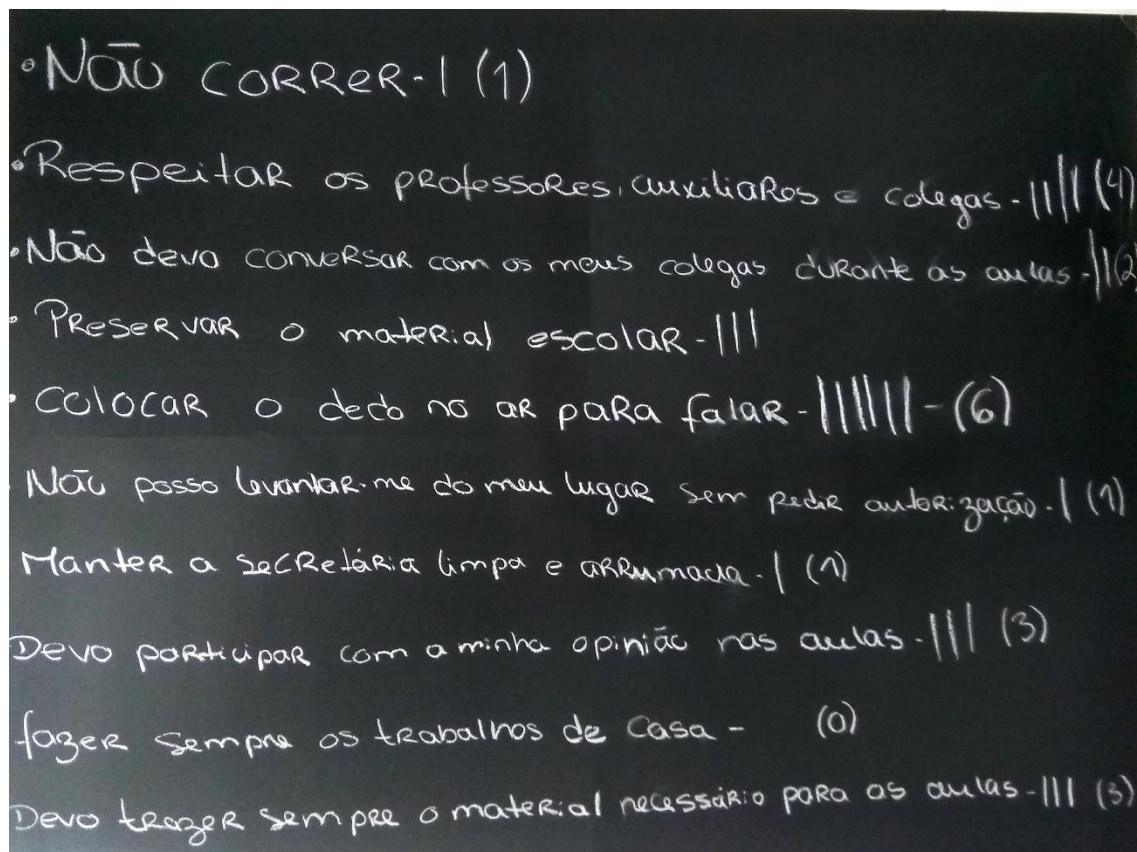 • Não CORReR - | (1)
• RespeitaR os pRofessoRes, auxiliaRes e colegas - |||| (4)
• Não devo conveRsaR com os meus colegas duRante as aulas - || (2)
• PReseRvaR o mateRial escolaR - |||
• ColocaR o dedo no aR paRa falaR - |||||| - (6)
Não posso levantaR-me do meu lugaR sem pediR autoRização - | (1)
ManteR a secRetáRia limpa e aRRumada - | (1)
Devo paRticipaR com a minha opinião nas aulas - ||| (3)
fazeR sempRe os tRabalhos de casa - (0)
Devo tRazeR sempRe o mateRial necessáRio paRa as aulas - ||| (3)